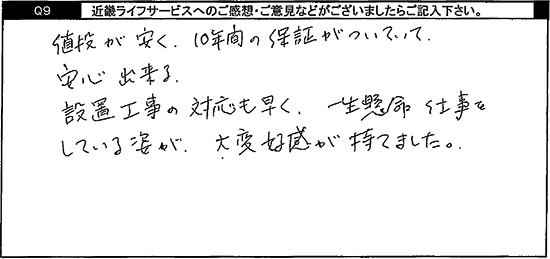 Q9 近畿ライフサービスへのご感想・ご意見などがございましたらご記入下さい。
値段が安く、10年間の保証がついていて、
安心出来る。
設置工事の対応も早く、一生懸命仕事を
している姿が、大変好感が持てました。